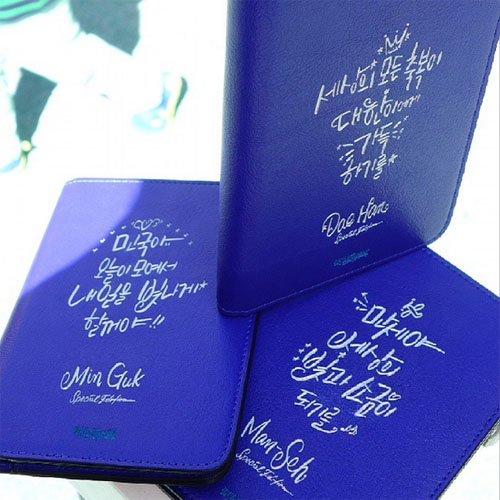 세상의 모든 축복이
대한이에게
가득
하기를
Dae Han
Special Edition
민국아
오늘이 모여서
내일을 빛나게
할꺼야!!
Min Guk
Special Edition
만세야
이 세상의
빛과 소금이
되기를
Man Seh
Special Edition